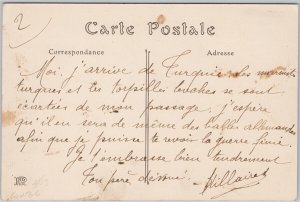 2
Carte Postale
Correspondance
Adresse
Moi j'arrive de Turquie les marins
turques et les torpilles lâches se sont
écartées de mon passage j'espère
qu'il en sera de même des balles allemandes
afin que je puisse te revoir la guerre finie
Je t'embrasse bien tendrement
Ton père dévoué Hillairet